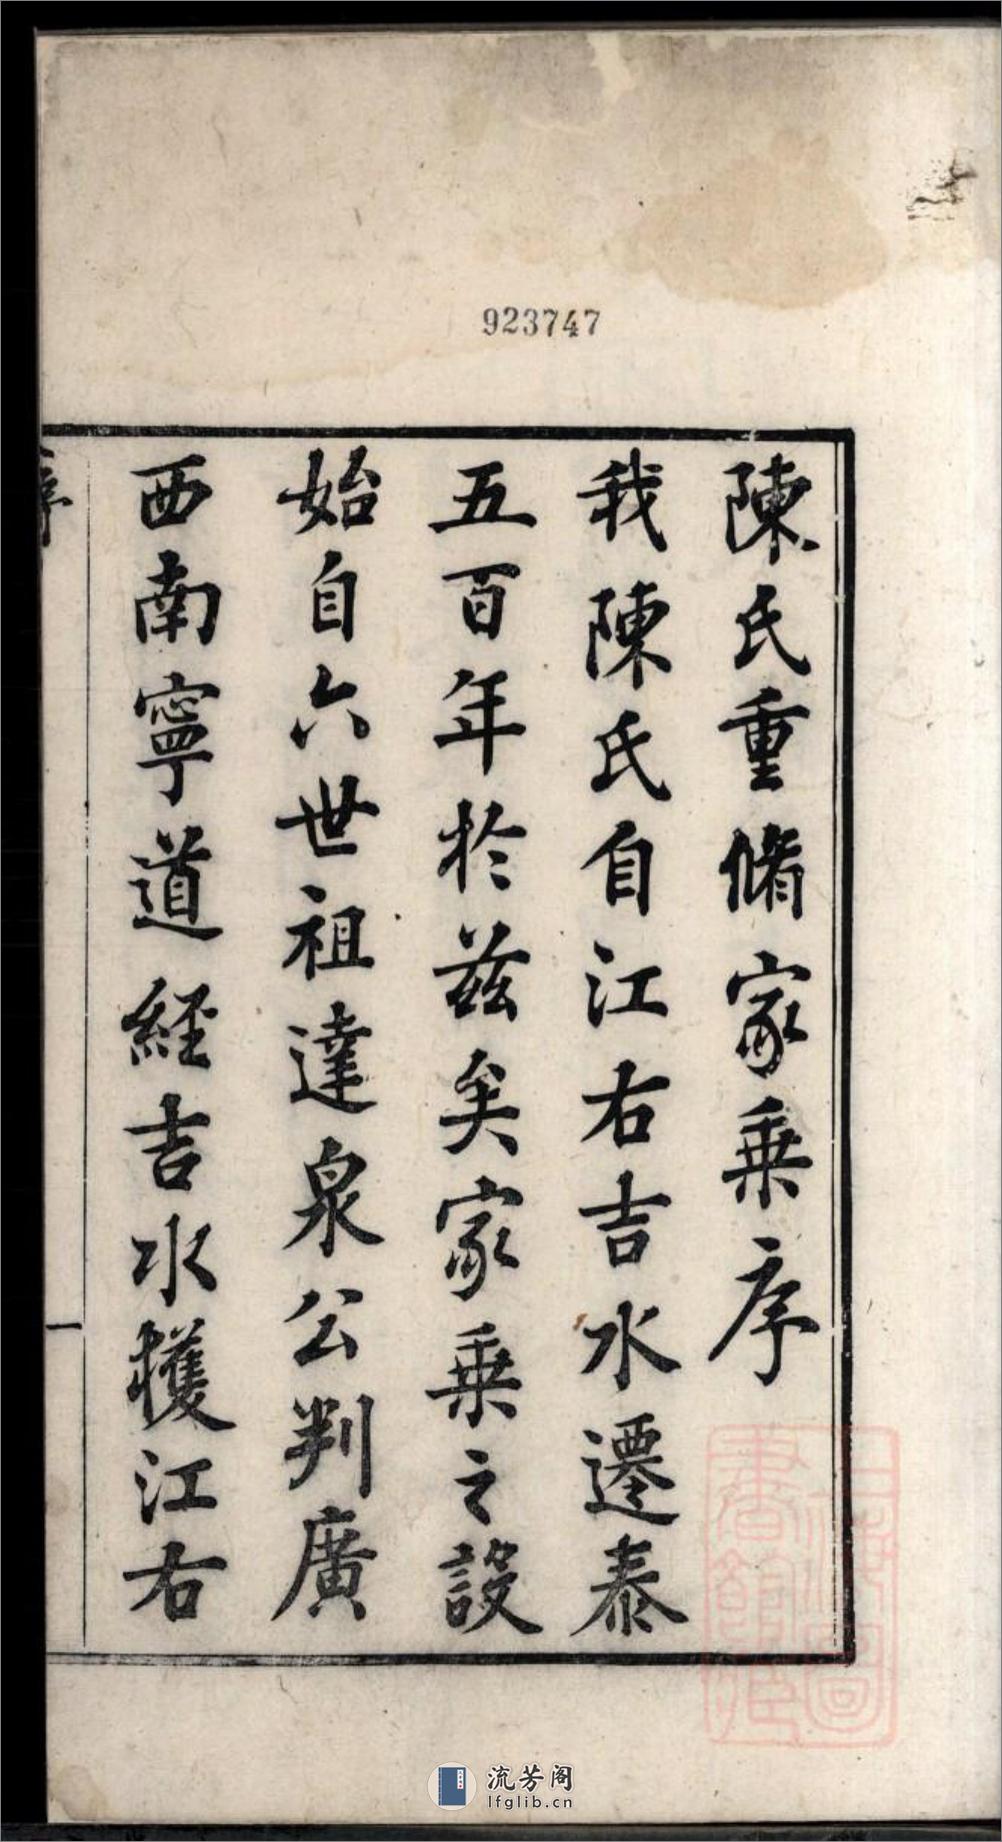 923747
陳氏重脩家乗序
我陳氏自江右吉水遷泰
五百年於茲矣家乗之設
始自六世祖達泉公判廣
西南寧道経吉水獲江右
序
一
上海圖書館藏
流芳阁
lfglib.cn